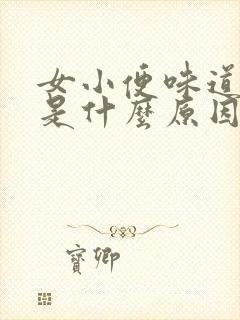 女小便味道
是什麼原因
寶卿